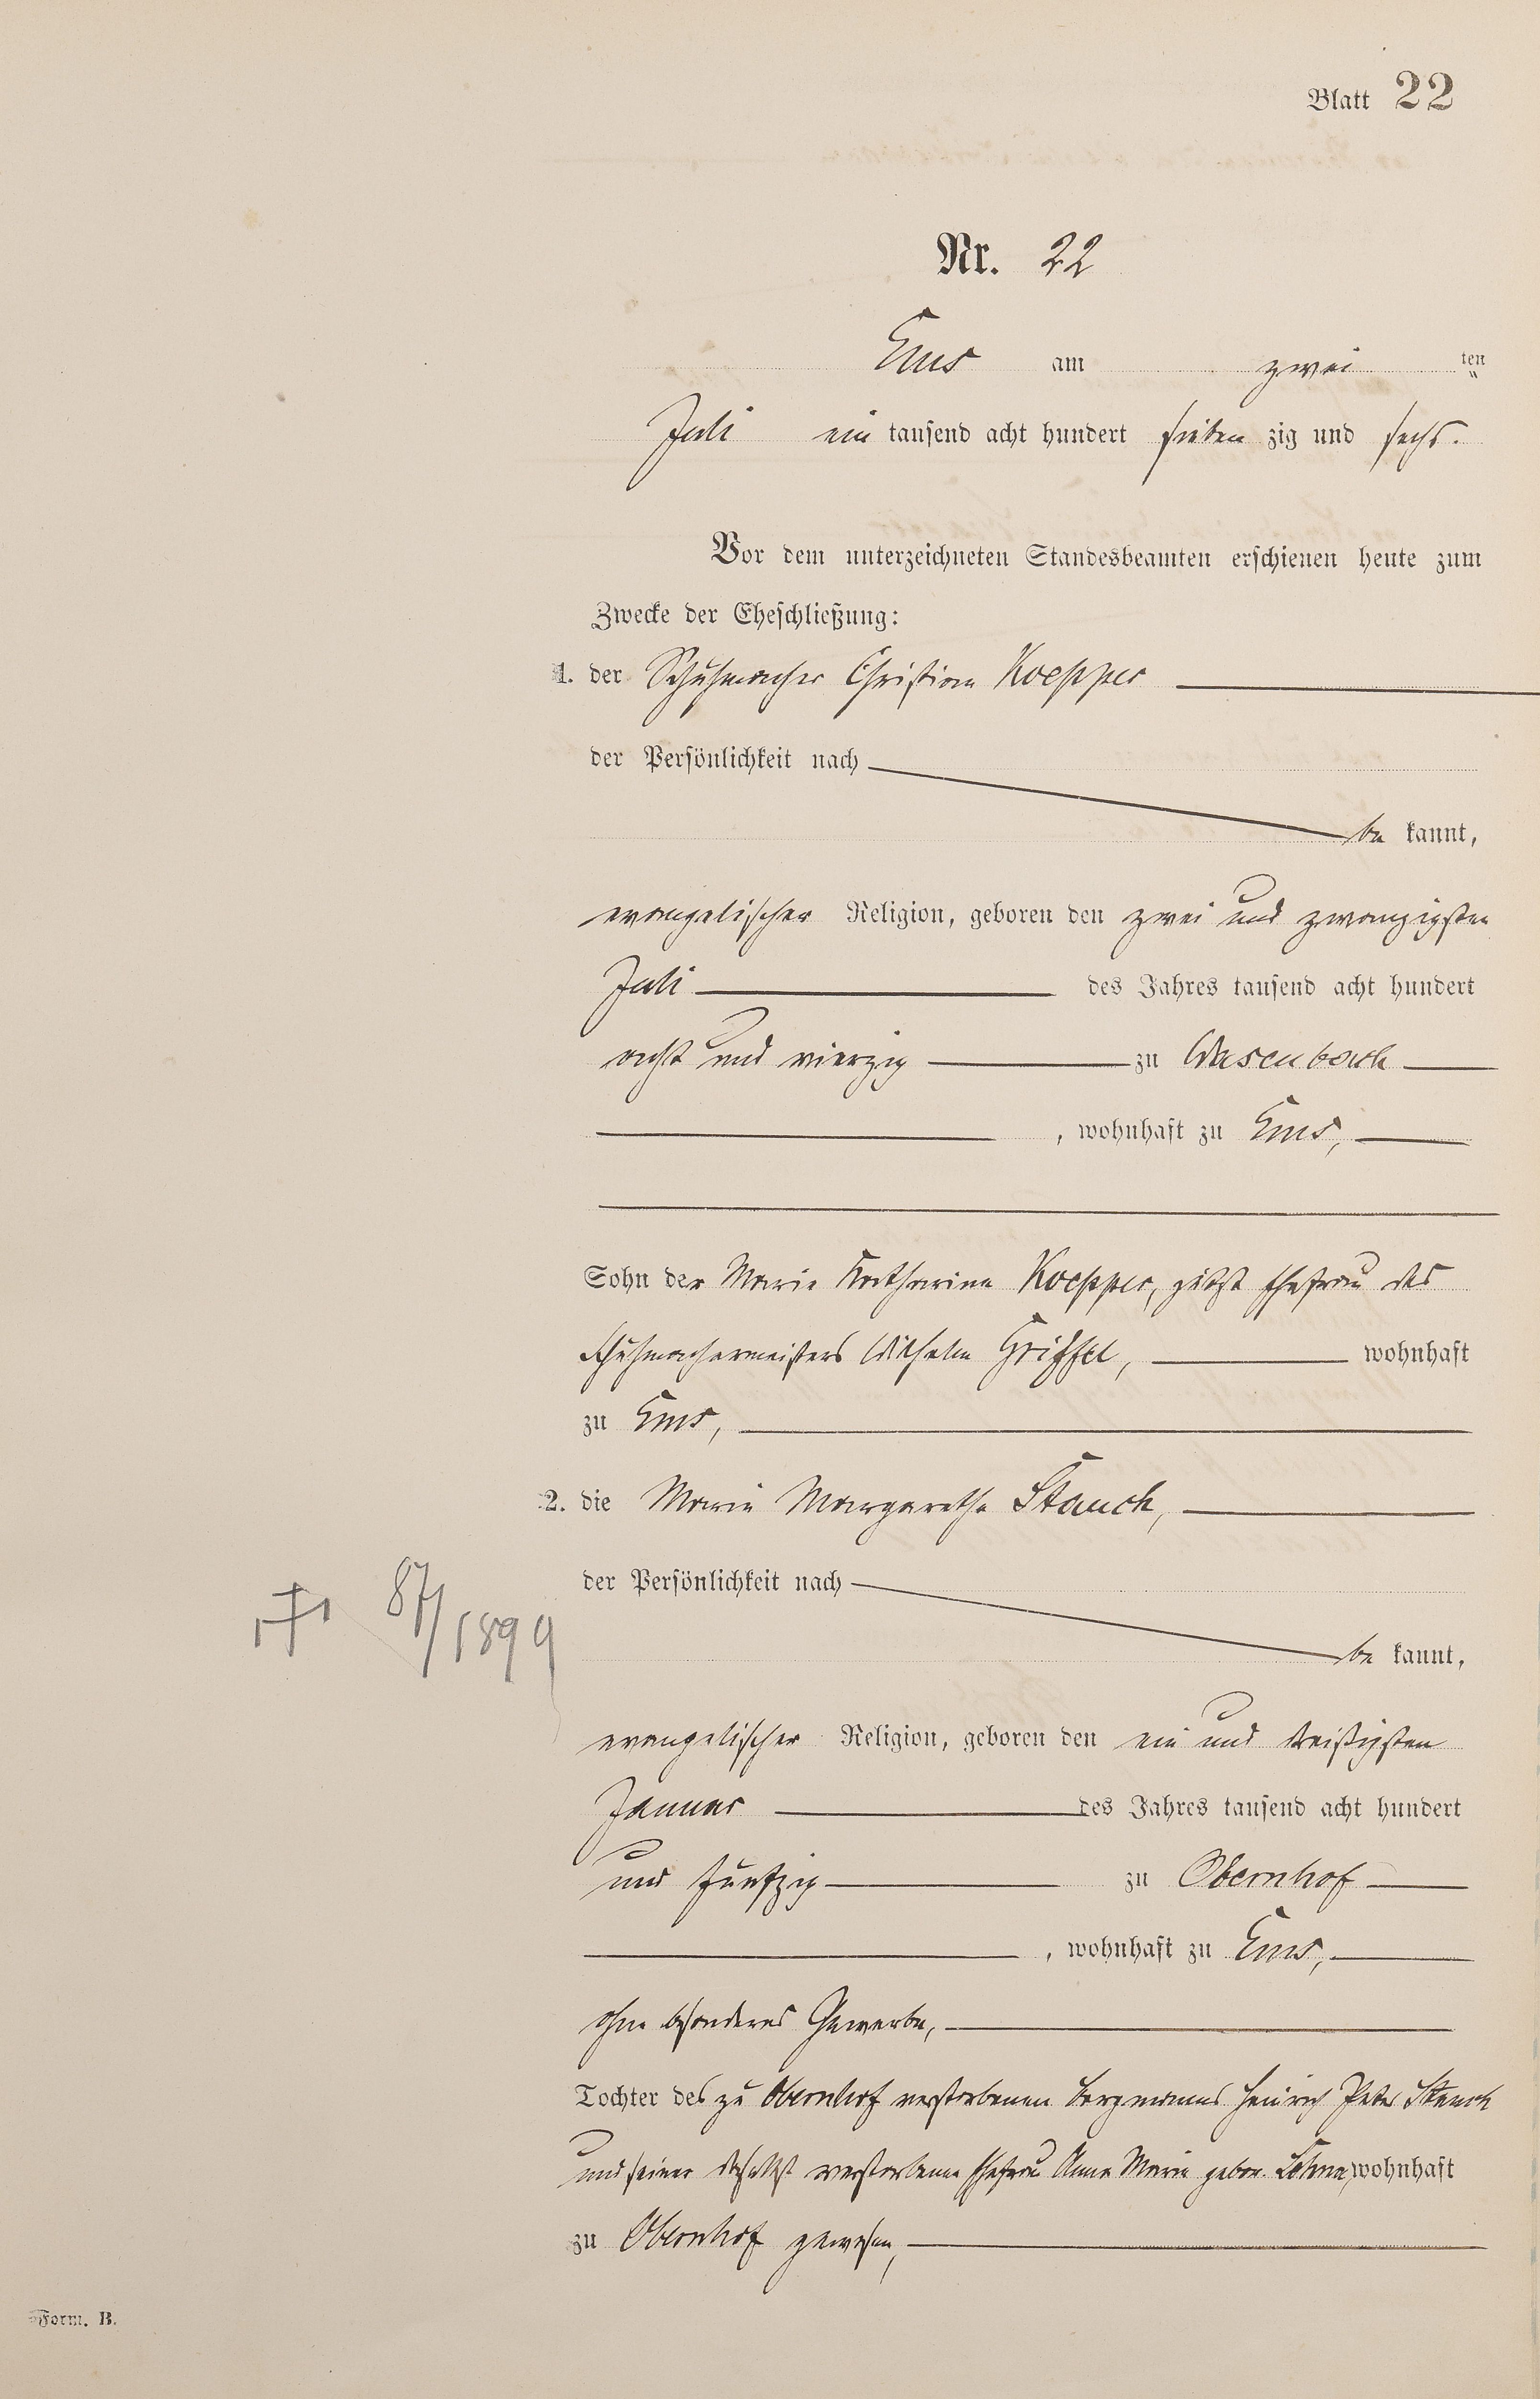 Blatt 22
Nr. 22
Ems am zwei ten
Juli ein tausend acht hundert sieben zig und sechs.
Vor dem unterzeichneten Standesbeamten erschienen heute zum
Zwecke der Eheschließung:
1. der Schuhmacher Christian Koepper
der Persönlichkeit nach
be kannt,
evangelischer Religion, geboren den zwei und zwanzigsten
Juli des Jahres tausend acht hundert
acht und vierzig zu Wasenbach
, wohnhaft zu Ems,
Sohn der Marie Katharine Koepper, jetzt Ehefrau des
Schuhmachermeisters Wilhelm Griffel, wohnhaft
zu Ems,
2. die Marie Margarethe Stauch,
der Persönlichkeit nach
87/1899
be kannt,
evangelischer Religion, geboren den ein und dreißigsten
Januar des Jahres tausend acht hundert
und fünfzig zu Obernhof
, wohnhaft zu Ems,
ohne besonderes Gewerbe,
Tochter des zu Obernhof verstorbenen Bergmanns Heinrich Peter Stauch
und seiner daselbst verstorbenen Ehefrau Anna Marie gebor. wohnhaft
zu Obernhof gewesen,
Form. B.